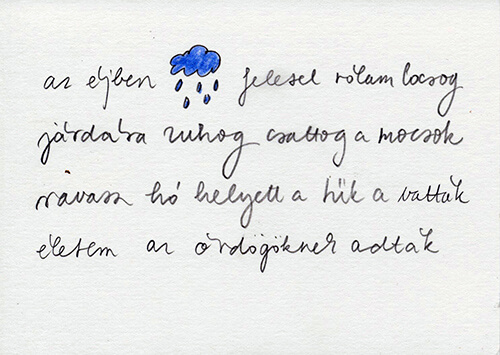 az éjben jelesel rólam locsog
járdára zuhog csattog a mocsok
ravasz hó helyett a tük a vatták
életem az ördögöknek adták